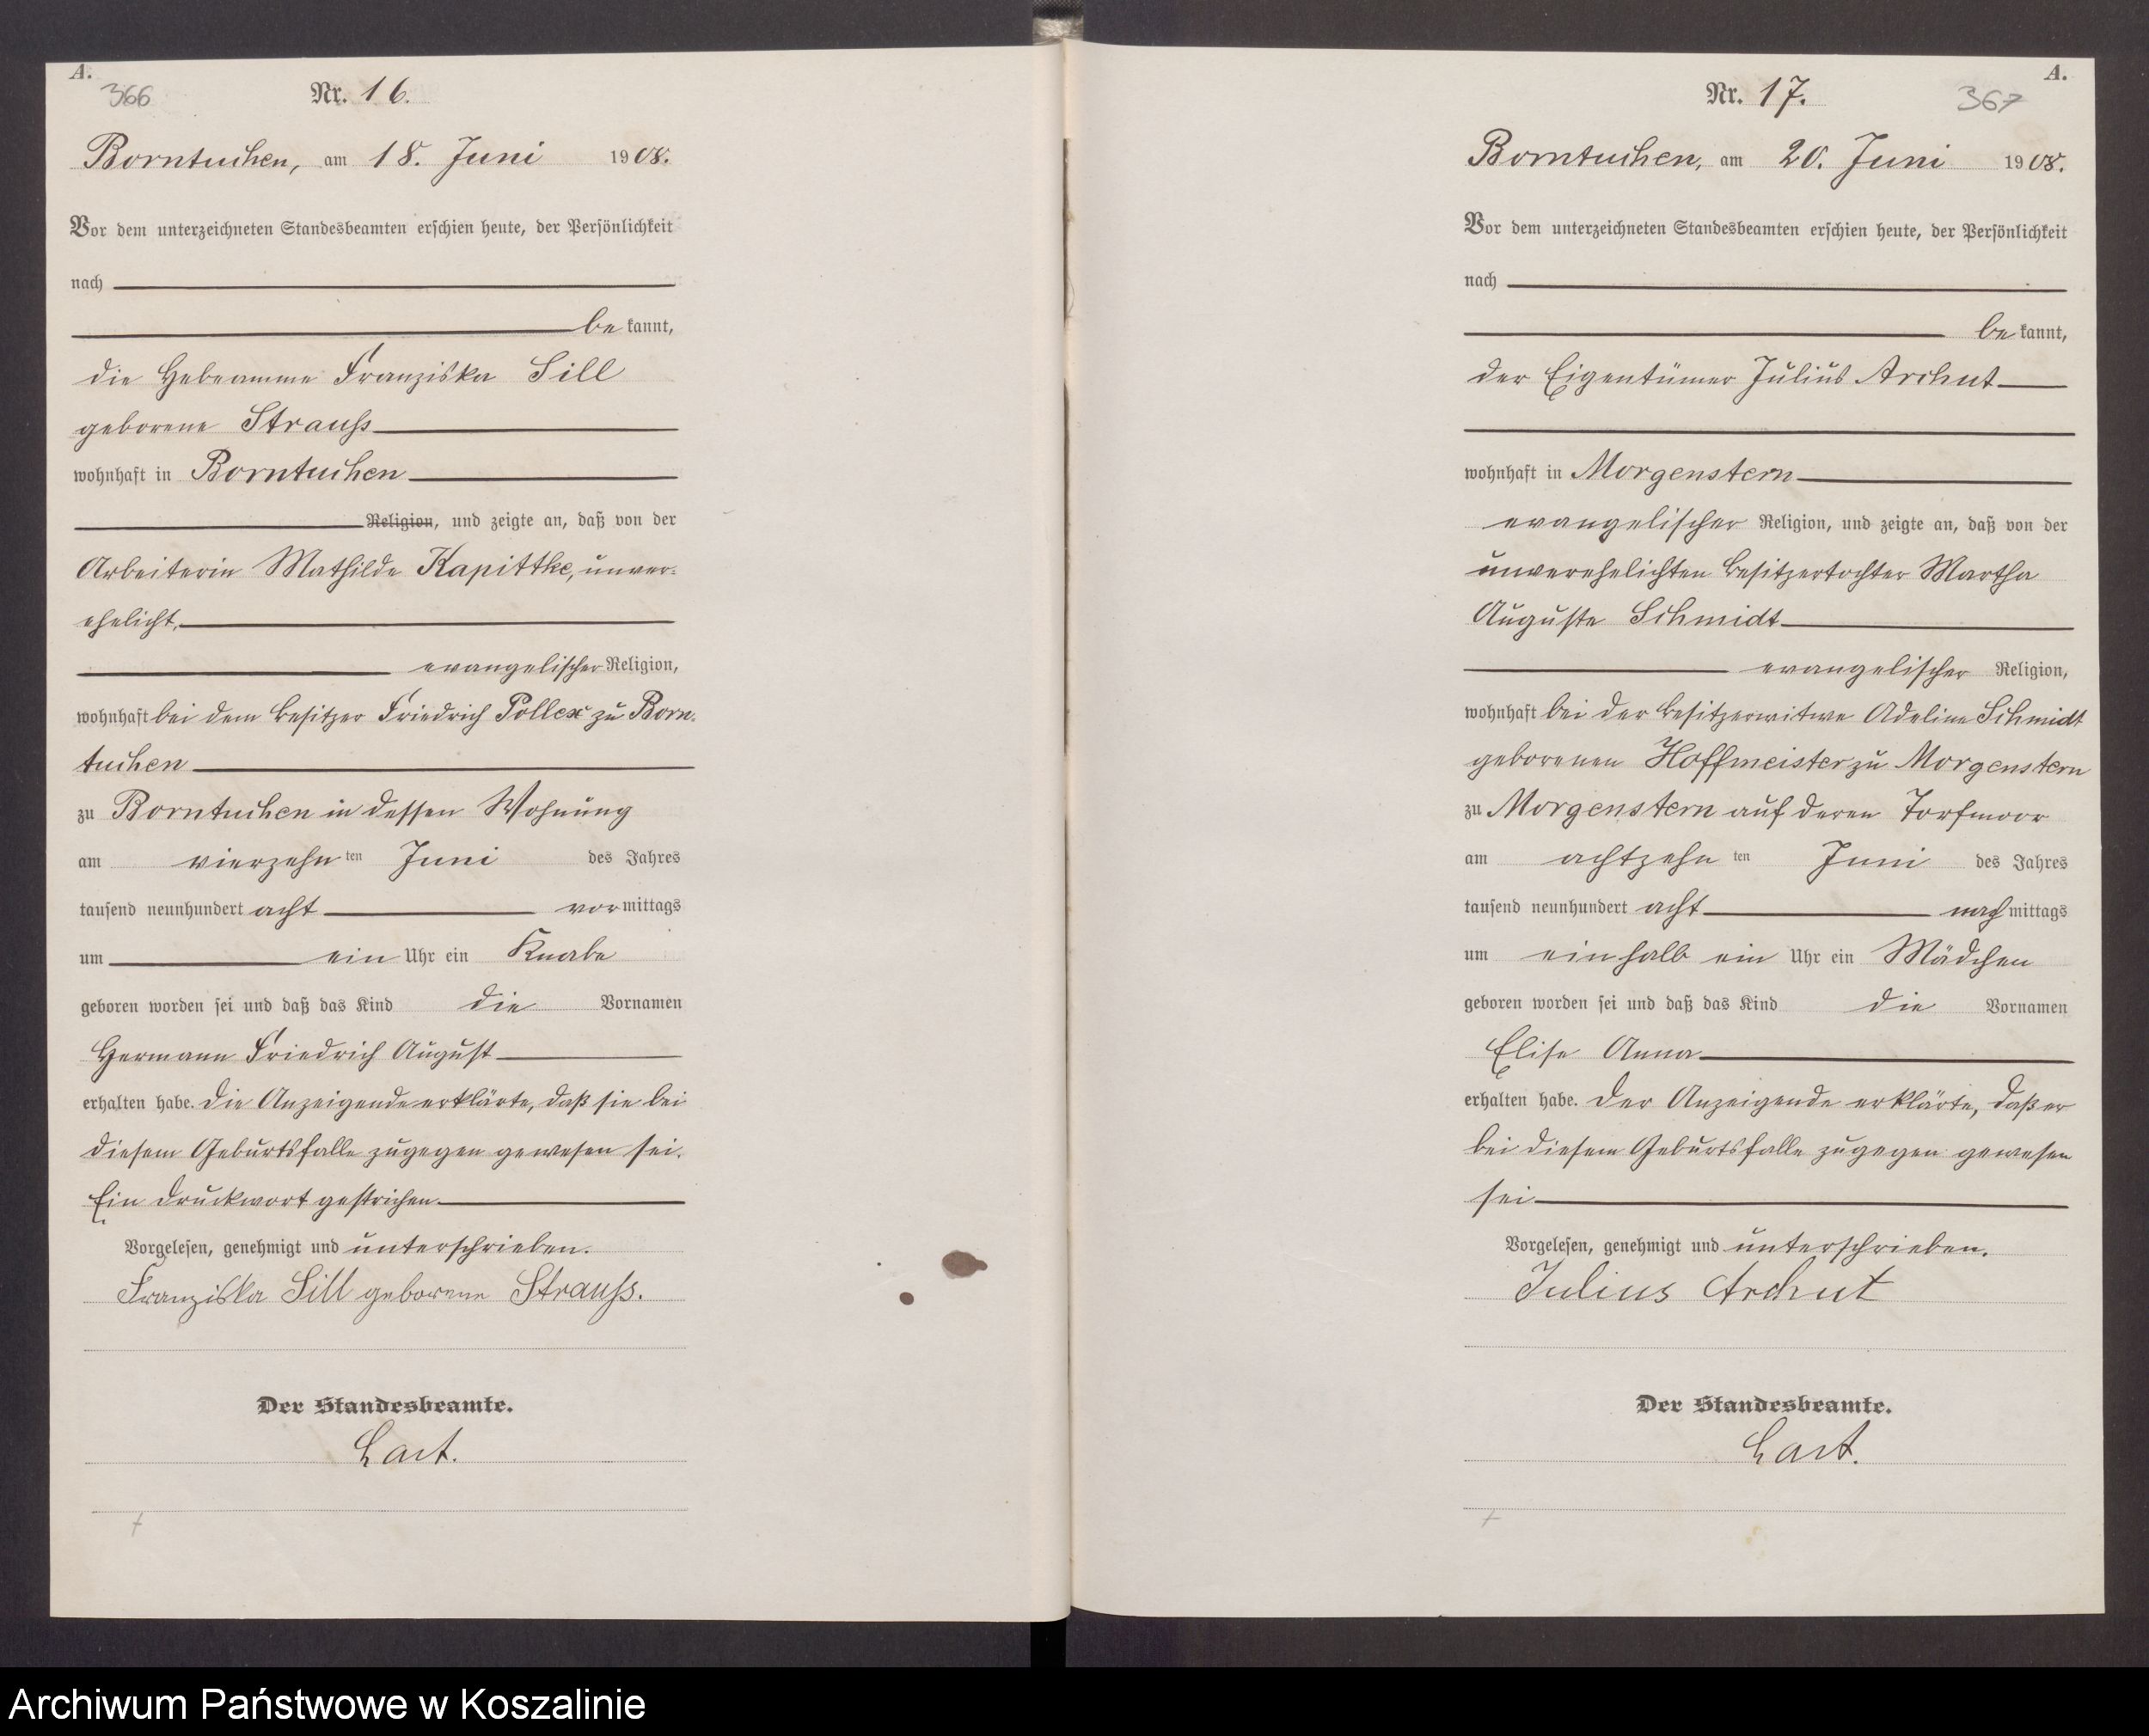 A.
366
Nr. 16.
Borntuchen, am 18. Juni 1908.
Vor dem unterzeichneten Standesbeamten erschien heute, der Persönlichkeit
nach
be kannt,
die Hebeamme Franziska Sill
geborene Strauss
wohnhaft in Borntuchen
Religion, und zeigte an, daß von der
Arbeiterin Mathilde Kapittke, unver-
ehelicht,
evangelischer Religion,
wohnhaft bei dem Besitzer Friedrich Pollex zu Born-
tuchen
zu Borntuchen in dessen Wohnung
am vierzehn ten Juni des Jahres
tausend neunhundert acht vor mittags
um ein Uhr ein Knabe
geboren worden sei und daß das Kind die Vornamen
Hermann Friedrich August
erhalten habe. Die Anzeigende erklärte, daß sie bei
diesem Geburtsfalle zugegen gewesen sei.
Ein Druckwort gestrichen.
Vorgelesen, genehmigt und unterschrieben.
Franziska Sill geborene Strauss.
Der Standesbeamte.
Lart.
A.
Nr. 17.
367
Borntuchen, am 20. Juni 1908.
Vor dem unterzeichneten Standesbeamten erschien heute, der Persönlichkeit
nach
be kannt,
der Eigentümer Julius Archut
wohnhaft in Morgenstern
evangelischer Religion, und zeigte an, daß von der
unverehelichten Besitzertochter Martha
Auguste Schmidt
evangelischer Religion,
wohnhaft bei der Besitzerwitwe Adeline Schmidt
geborenen Hoffmeister zu Morgenstern
zu Morgenstern auf deren Torfmoor
am achtzehn ten Juni des Jahres
tausend neunhundert acht nach mittags
um einhalb ein Uhr ein Mädchen
geboren worden sei und daß das Kind die Vornamen
Elise Anna
erhalten habe. Der Anzeigende erklärte, daß er
bei diesem Geburtsfalle zugegen gewesen
sei
Vorgelesen, genehmigt und unterschrieben.
Julius Archut
Der Standesbeamte.
Lart.
Archiwum Państwowe w Koszalinie